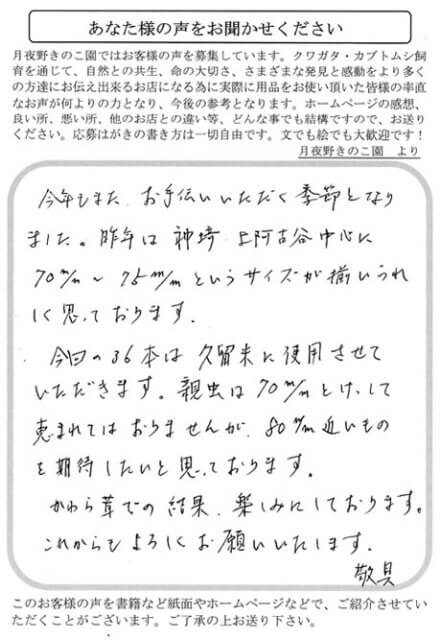 あなた様の声をお聞かせください
月夜野きのこ園ではお客様の声を募集しています。クワガタ・カブトムシ飼
育を通じて、自然との共生、命の大切さ、さまざまな発見と感動をより多く
の方達にお伝え出来るお店になる為に実際に用品をお使い頂いた皆様の率直
なお声が何よりの力となり、今後の参考となります。ホームページの感想、
良い所、悪い所、他のお店との違い等、どんな事でも結構ですので、お送り
ください。応募はがきの書き方は一切自由です。文でも絵でも大歓迎です！
月夜野きのこ園　より
今年もまた、お手伝いいただく季節となり
ました。昨年は神埼、上阿古谷中心に
70m/m～75m/mというサイズが揃いうれ
しく思っております。
今回の36本は久留米に使用させて
いただきます。親虫は70m/mとけっして
恵まれてはおりませんが、80m/m近いもの
を期待したいと思っております。
かわら茸での結果、楽しみにしております。
これからもよろしくお願いいたします。
敬具
このお客様の声を書籍など紙面やホームページなどで、ご紹介させてい
ただくことがございます。ご了承の上お送り下さい。